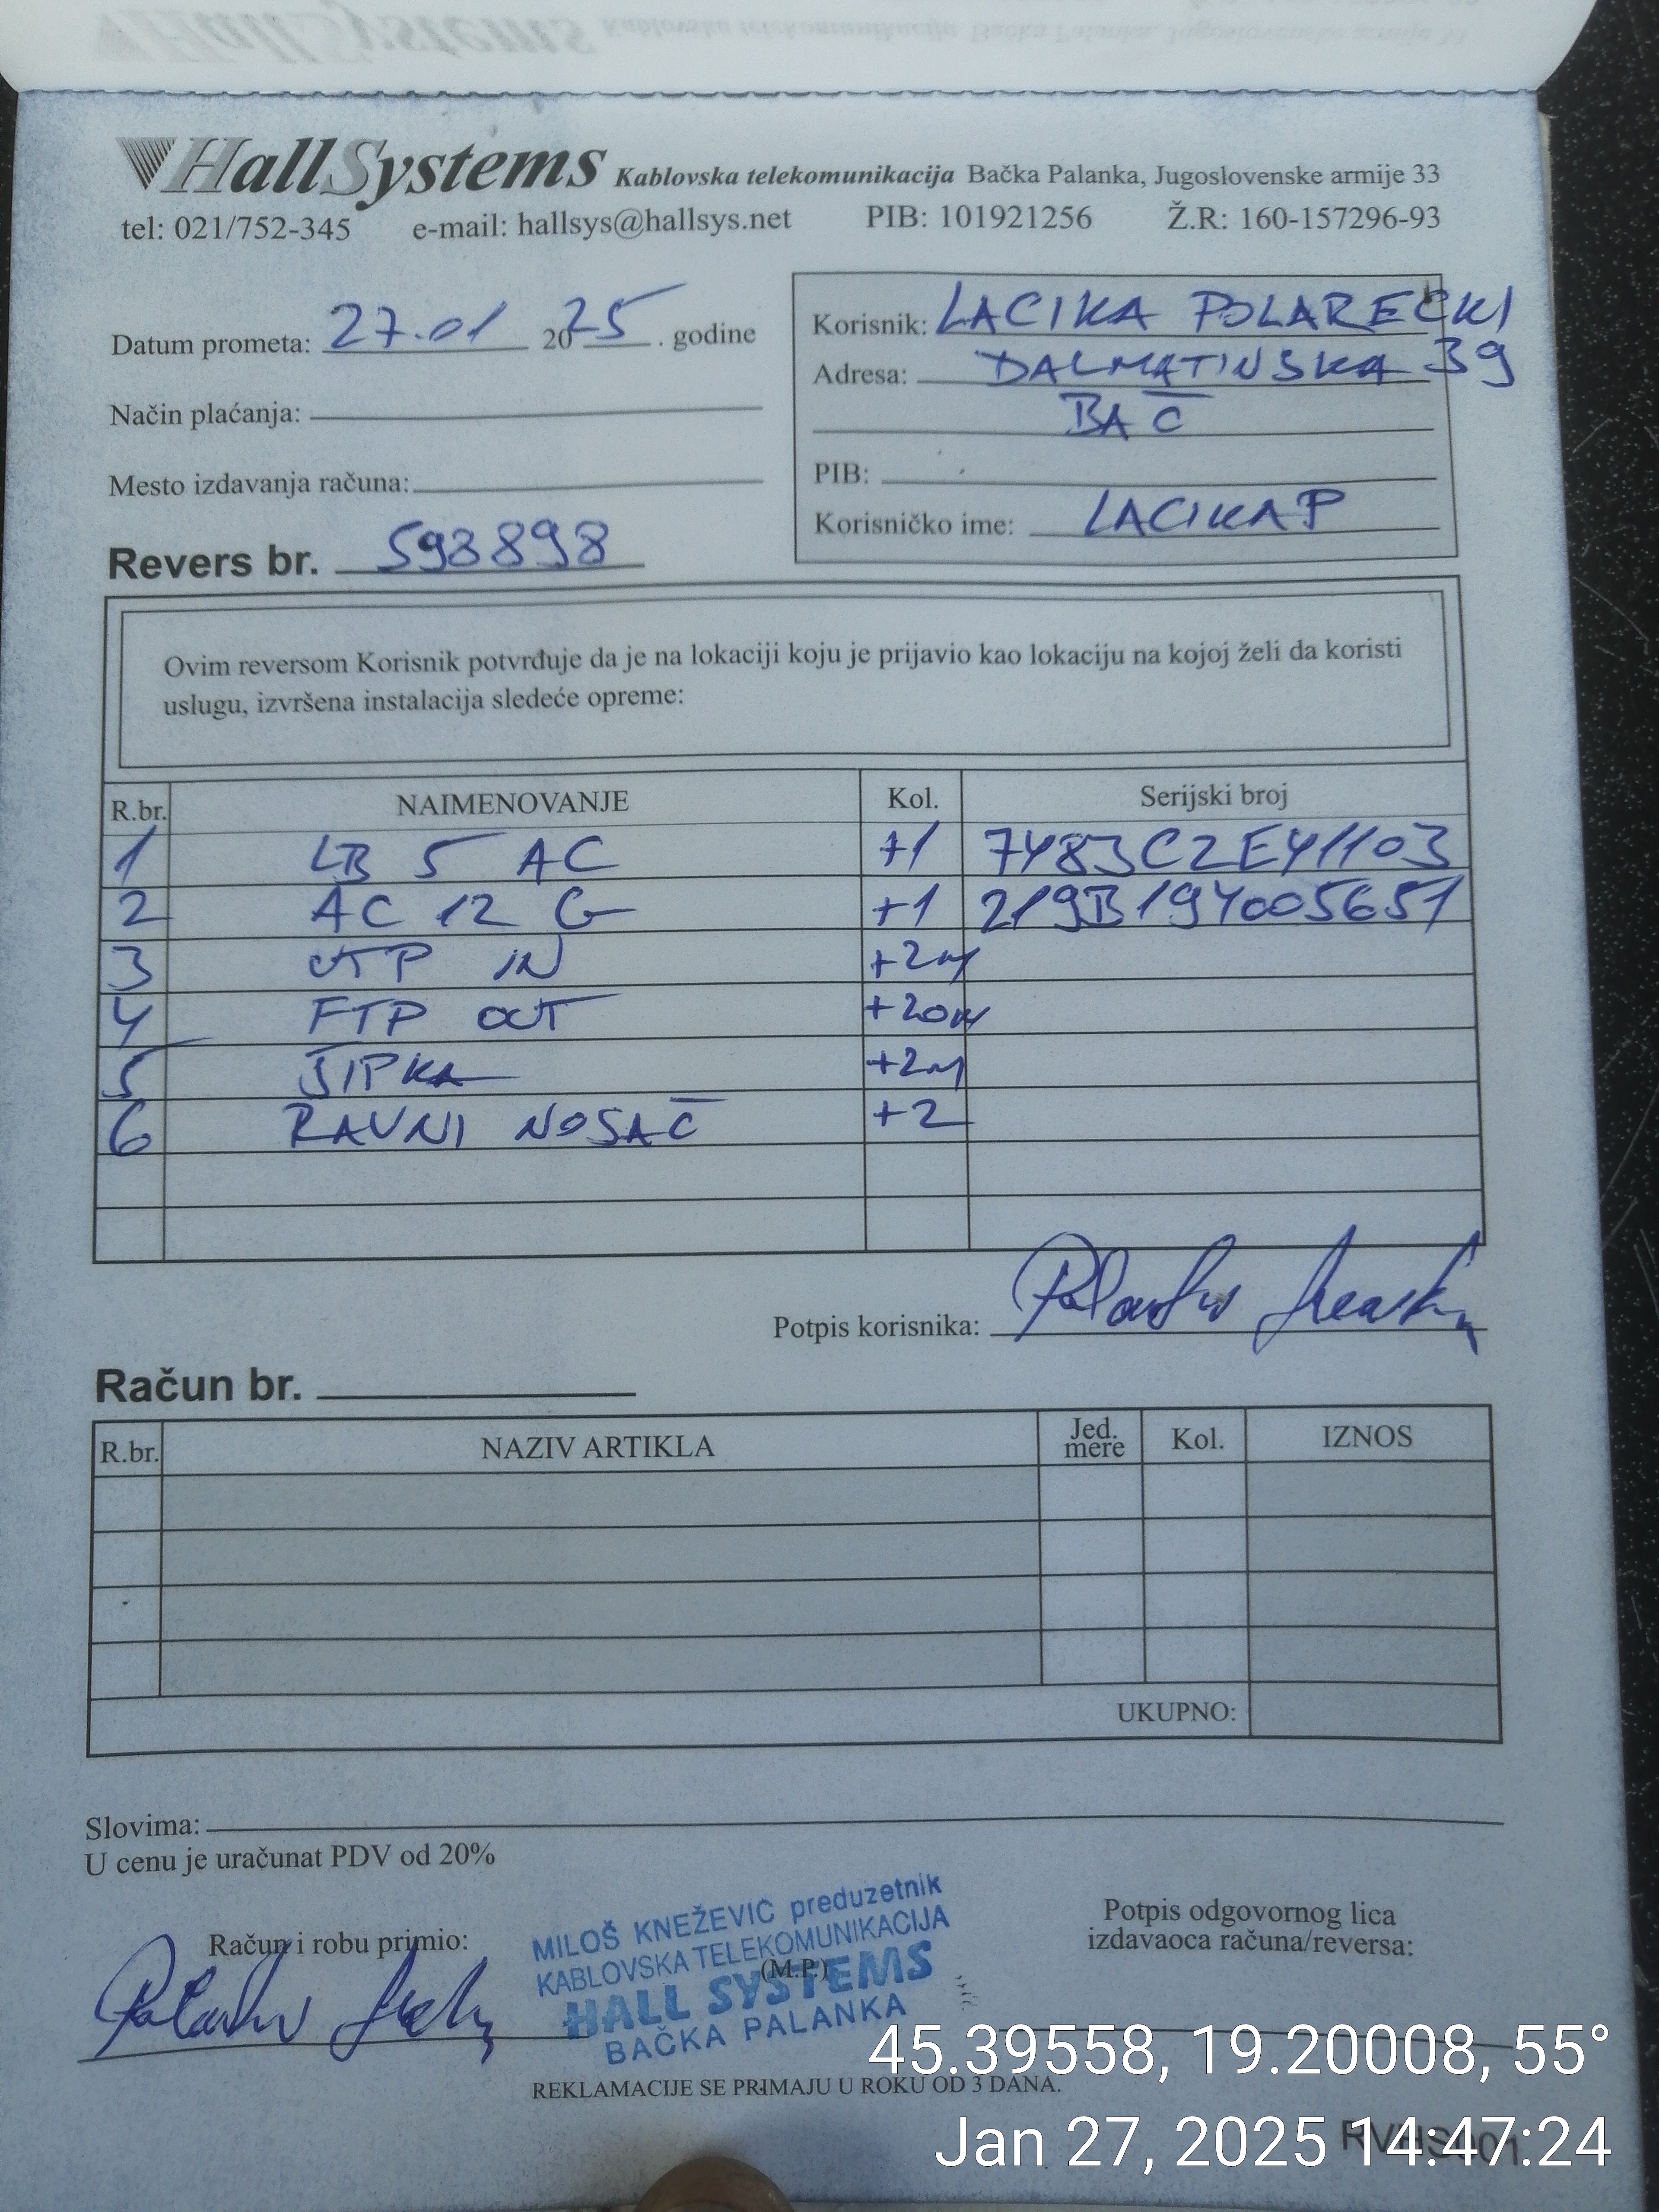 HallSystems Kablovska telekomunikacija Bačka Palanka, Jugoslovenske armije 33
tel: 021/752-345 e-mail: hallsys@hallsys.net PIB: 101921256 Ž.R: 160-157296-93
Datum prometa: 27.01 2025. godine
Način plaćanja:
Mesto izdavanja računa:
Revers br. 598898
Korisnik: LACIKA POLARECKI
Adresa: DALMATINSKA 39
BAČ
PIB:
Korisničko ime: LACIKAP
Ovim reversom Korisnik potvrđuje da je na lokaciji koju je prijavio kao lokaciju na kojoj želi da koristi
uslugu, izvršena instalacija sledeće opreme:
R.br. NAIMENOVANJE Kol. Serijski broj
1 LB 5 AC +1 7483C2E41103
2 AC 12 G +1 219B194005651
3 UTP IN +2m
4 FTP OUT +20m
5 ŠIPKA +2m
6 RAVNI NOSAČ +2
Potpis korisnika:
Račun br.
R.br. NAZIV ARTIKLA Jed. mere Kol. IZNOS
UKUPNO:
Slovima:
U cenu je uračunat PDV od 20%
Račun i robu primio:
MILOŠ KNEŽEVIĆ preduzetnik
KABLOVSKA TELEKOMUNIKACIJA
(M.P.)
HALL SYSTEMS
BAČKA PALANKA
Potpis odgovornog lica
izdavaoca računa/reversa:
REKLAMACIJE SE PRIMAJU U ROKU OD 3 DANA.
45.39558, 19.20008, 55°
Jan 27, 2025 14:47:24